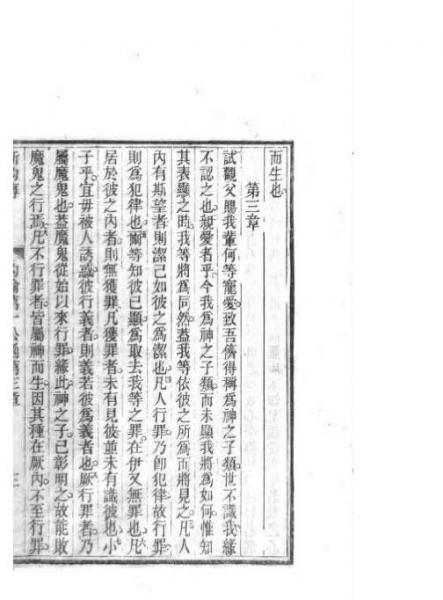 而生也
第三章
試觀父賜我輩何等寵愛致吾儕得稱為神之子類世不識我緣
不認之也親愛者乎今我為神之子類而未顯我將為如何惟知
其表顯之時我等將為同然蓋我等依彼之所為而將見之凡人
內有斯望者則潔己如彼之為潔也凡人行罪乃即犯律故行罪
則為犯律也爾等知彼已顯為取去我等之罪在伊又無罪也凡
居於彼之內者則無獲罪凡獲罪者未有見彼並未有識彼也小
子乎宜毋被人誘惑彼行義者則義若彼為義者也厥行罪者乃
屬魔鬼也蓋魔鬼從始以來行罪緣此神之子已彰明之故能敗
魔鬼之行焉凡不行罪者皆屬神而生因其種在厥內不至行罪
新約 第一 第三章 三